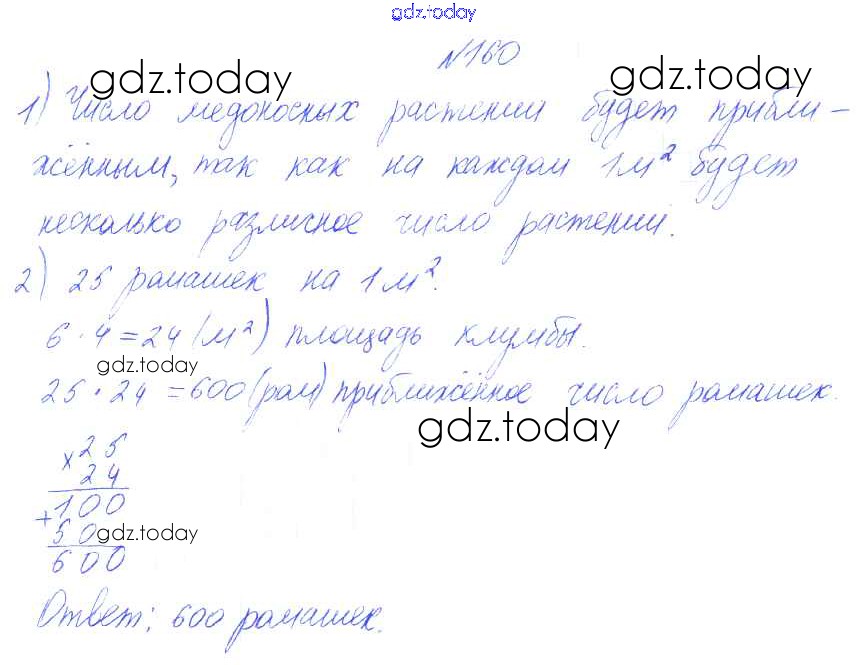 gdz.today
№160
gdz.today gdz.today
1) Число медоносных растений будет прибли-
жённым, так как на каждом 1м² будет
несколько различное число растений.
2) 25 ромашек на 1м².
6 · 4 = 24 (м²) площадь клумбы.
gdz.today
25 · 24 = 600 (ром) приближённое число ромашек.
gdz.today
× 25
24
100
+
50 gdz.today
600
Ответ: 600 ромашек.